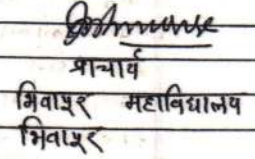 प्राचार्य
भिवापूर महाविद्यालय
भिवापूर